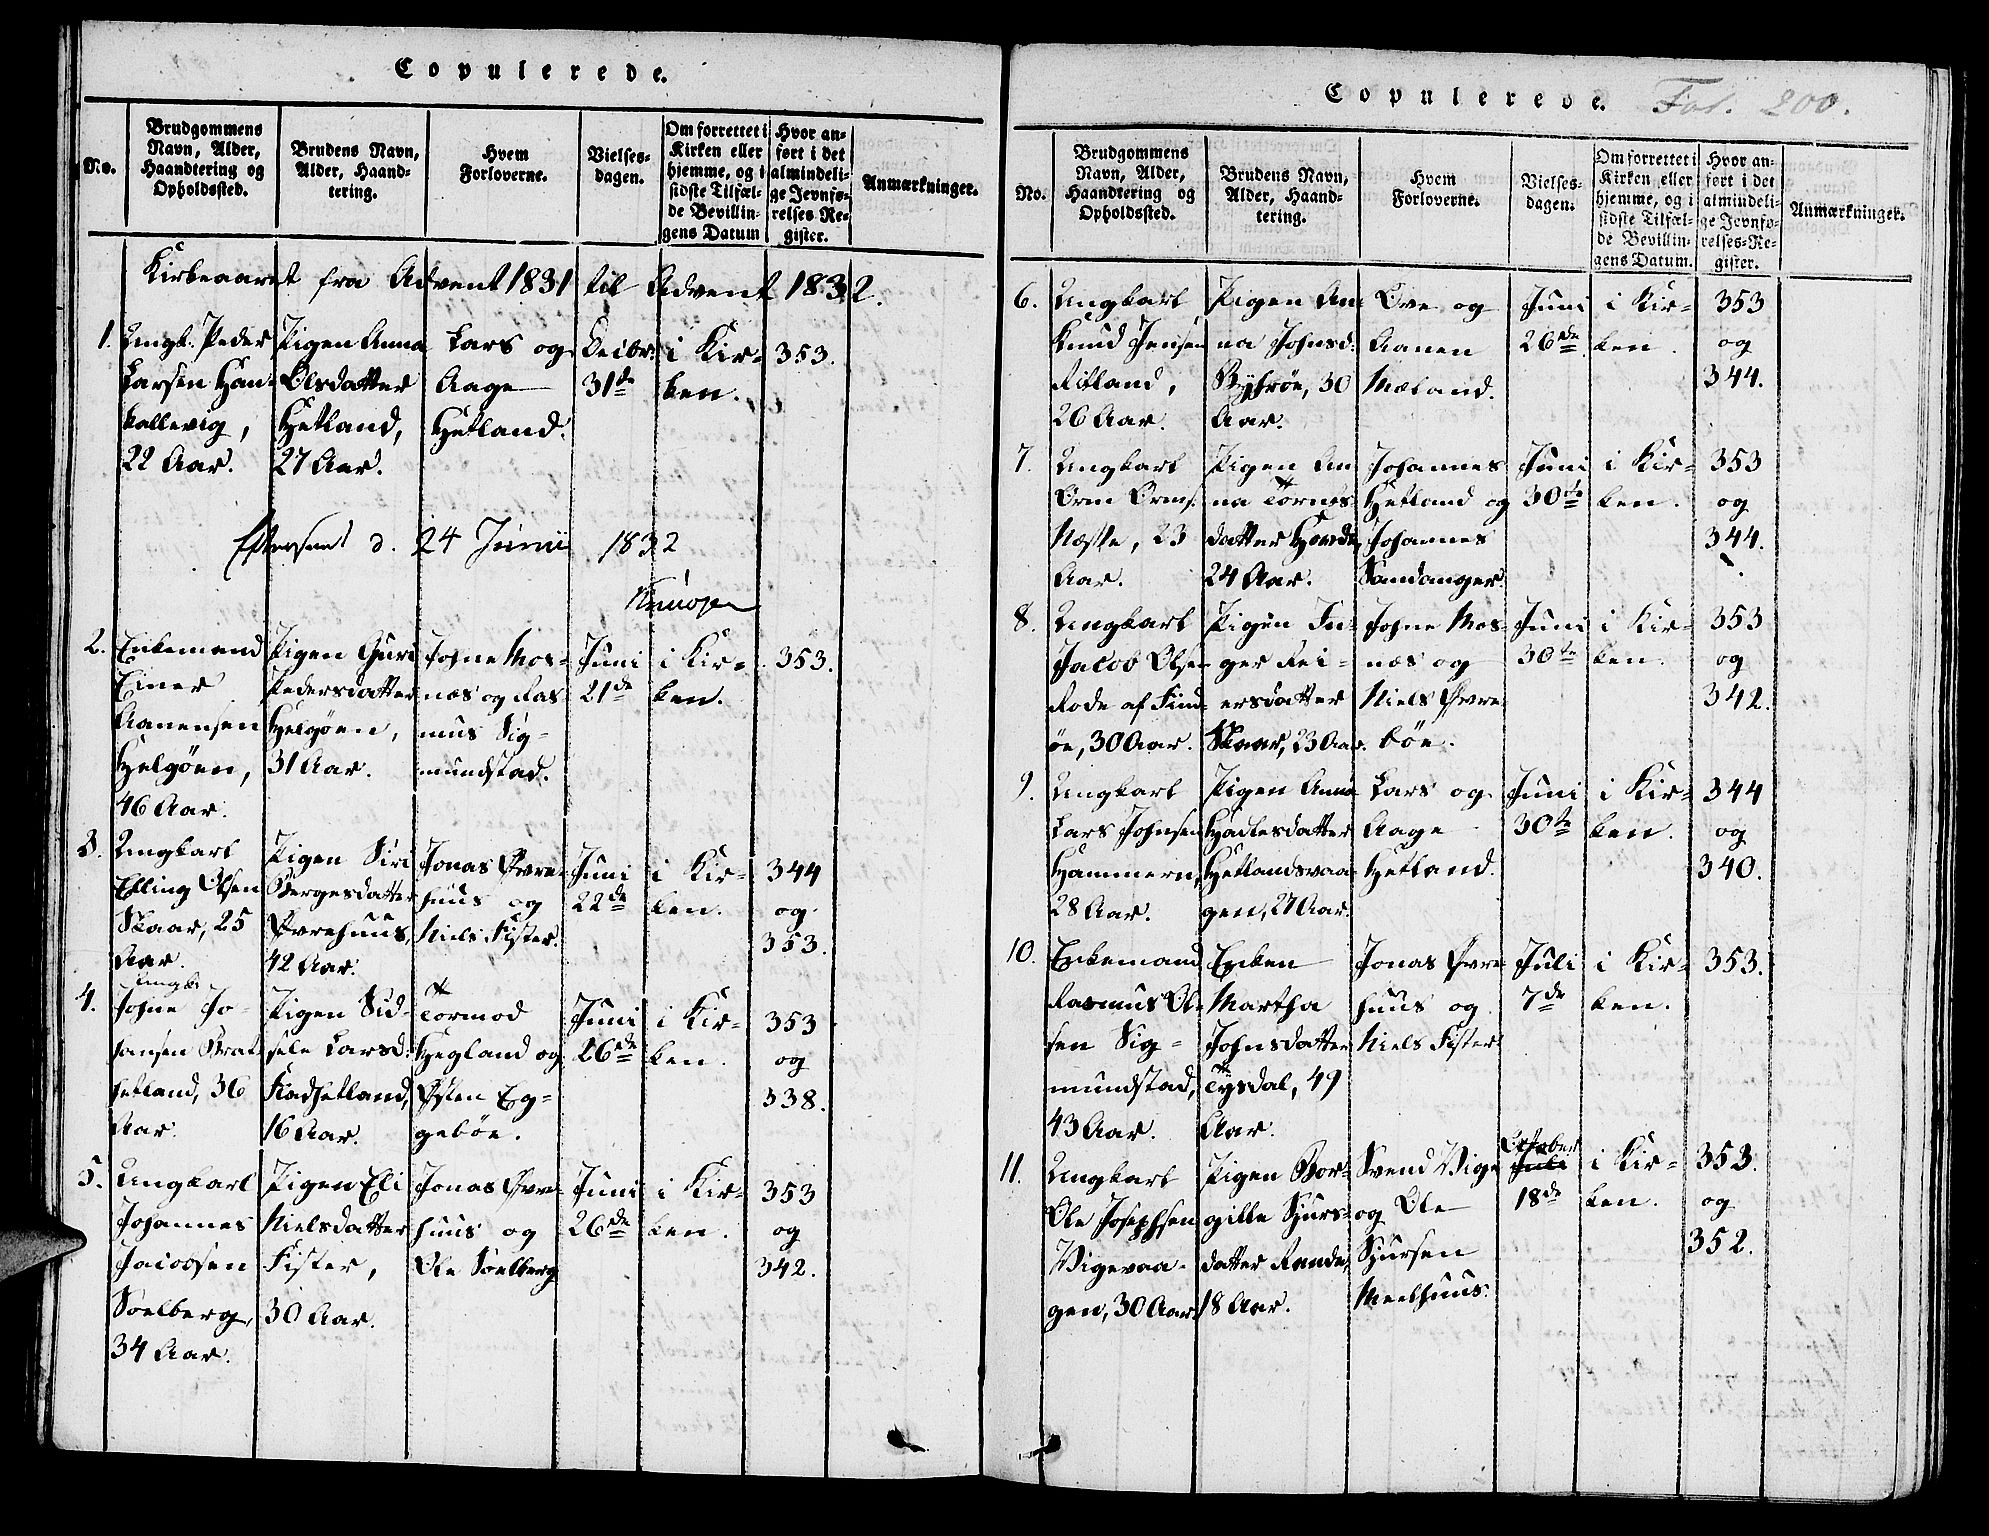 Copulerede.
No.
Brudgommens Navn, Alder, Haandtering og Opholdssted.
Brudens Navn, Alder, Haandtering.
Hvem Forloverne.
Vielsesdagen.
Om forrettet i Kirken eller hjemme, og i sidste Tilfælde Bevillingens Datum
Hvor anført i det almindelige Jevnførelses Register.
Anmærkninger.
Kirkeaaret fra Advent 1831 til Advent 1832.
1.
Ungk. Peder
Larsen Han-
kallevig,
22 Aar.
Pigen Anna
Olsdatter
Hetland,
27 Aar.
Lars og
Aage
Hetland.
Decbr.
31de
i Kir-
ken.
353.
Efterseet d. 24 Junii 1832
2.
Enkemand
Einer
Aanensen
Helgøen,
46 Aar.
Pigen Guri
Pedersdatter
Helgøen,
31 Aar.
Johne Mos-
næs og Ras-
mus Sig-
mundstad.
Juni
21de
i Kir-
ken.
353.
3.
Ungkarl
Elling Olsen
Skaar, 25
Aar.
Pigen Siri
Børgesdatter
Øvrehuus,
42 Aar.
Jonas Øvre-
huus og
Niels Fister.
Juni
22de
i Kir-
ken.
344
og
353.
4.
Ungk.
Johne Jo-
hansen Brat-
hetland, 36
Aar.
Pigen Sid-
sele Larsd.
Kadhetland,
16 Aar.
Tormod
Hegland og
Østen Eg-
gebøe.
Juni
26de
i Kir-
ken.
353
og
338.
5.
Ungkarl
Johannes
Jacobsen
Soelberg,
34 Aar.
Pigen Eli
Nielsdatter
Fister,
30 Aar.
Jonas Øvre-
huus og
Ole Soelberg
Juni
26de
i Kir-
ken.
353
og
342.
Copulerede.
Fol. 200.
No.
Brudgommens Navn, Alder, Haandtering og Opholdssted.
Brudens Navn, Alder, Haandtering.
Hvem Forloverne.
Vielsesdagen.
Om forrettet i Kirken eller hjemme, og i sidste Tilfælde Bevillingens Datum.
Hvor anført i det almindelige Jevnførelses-Register.
Anmærkninger.
6.
Ungkarl
Knud Jensen
Ritland,
26 Aar.
Pigen An-
na Johnsd.
Byhrøe, 30
Aar.
Ove og
Aanen
Mæland.
Juni
26de
i Kir-
ken.
353
og
344.
7.
Ungkarl
Orm Orms.
Næssе, 23
Aar.
Pigen An
na Tormos
datter
24 Aar.
Johannes
Hetland og
Johannes
Sandanger.
Juni
30te
i Kir-
ken.
353
og
344.
8.
Ungkarl
Jacob Olsen
Rode af Find-
øe, 30 Aar.
Pigen In-
ger Rei-
ersdatter
Skaar, 23 Aar.
Johne Mos-
næs og
Niels Øvre
bøe.
Juni
30te
i Kir-
ken.
353
og
342.
9.
Ungkarl
Lars Johnsen
Hammern,
28 Aar.
Pigen Anna
Hadlesdatter
Hetlandsvaa-
gen, 27 Aar.
Lars og
Aage
Hetland.
Juni
30te
i Kir-
ken.
344
og
340.
10.
Enkemand
Rasmus Ol-
sen Sig-
mundstad,
43 Aar.
Enken
Martha
Johnsdatter
Tysdal, 49
Aar.
Jonas Øvre
huus og
Niels Fister
Juli
7de
i Kir-
ken.
353.
11.
Ungkarl
Ole Josephsen
Vigevaa-
gen, 30 Aar
Pigen Bor-
gille Sjurs-
datter Rande,
18 Aar.
Svend Vige
og Ole
Sjursen
Meelhuus.
October
Juli
18de
i Kir-
ken.
353.
og
352.